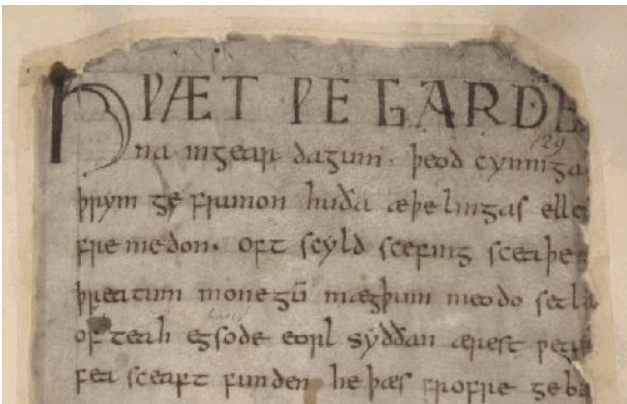 HǷÆT ǷE GARDE
129
na ingear dagum. þeod cyninga
þrym ge frunon huða æþelingas elle
fremedon. oft scyld scefing sceaþe
þreatum monegū mægþum meodo setla
of teah egsode eorl syððan ærest ƿear
fea sceaft funden heþæs frofre geba